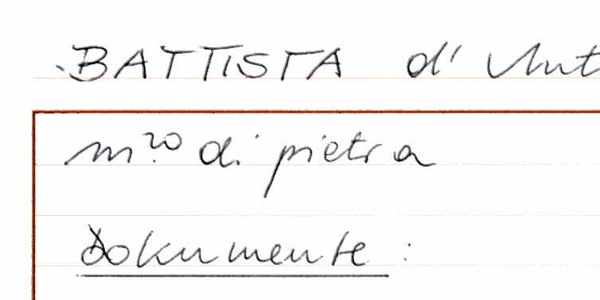 ·BATTISTA d' Ant
m.ro di pietra
Dokumente :